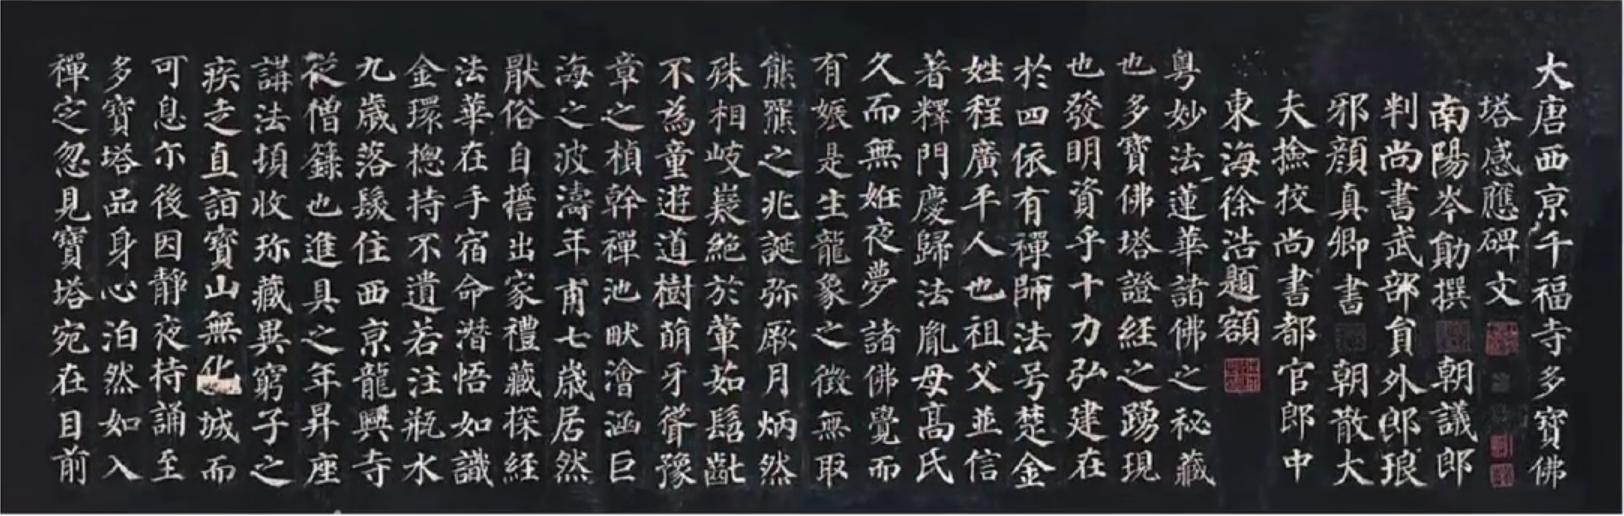 大唐西亰千福寺多寶佛
塔感應碑文
南陽岑勛撰 朝議郎
判尚書武部貟外郎琅
邪顔真卿書 朝散大
夫撿挍尚書都官郎中
東海徐浩題額
粤妙法蓮華諸佛之秘藏
也多寶佛塔證経之踴現
也發明資乎十力弘建在
於四依有禪師法号楚金
姓程廣平人也祖父並信
著釋門慶歸法胤母髙氏
久而無姙夜夢諸佛覺而
有娠是生龍象之徵無取
熊羆之兆誕弥厥月炳然
殊相岐嶷絕於葷茹髫齔
不為童遊道樹萌牙聳豫
章之楨幹禪池畎澮涵巨
海之波濤年甫七歲居然
猒俗自誓出家禮藏探経
法華在手宿命潜悟如識
金環揔持不遺若注瓶水
九歲落髮住西亰龍興寺
從僧籙也進具之年昇座
講法頃收珎藏異窮子之
疾走直詣寶山無化城而
可息尒後因靜夜持誦至
多寶塔品身心泊然如入
禪定忽見寶塔宛在目前